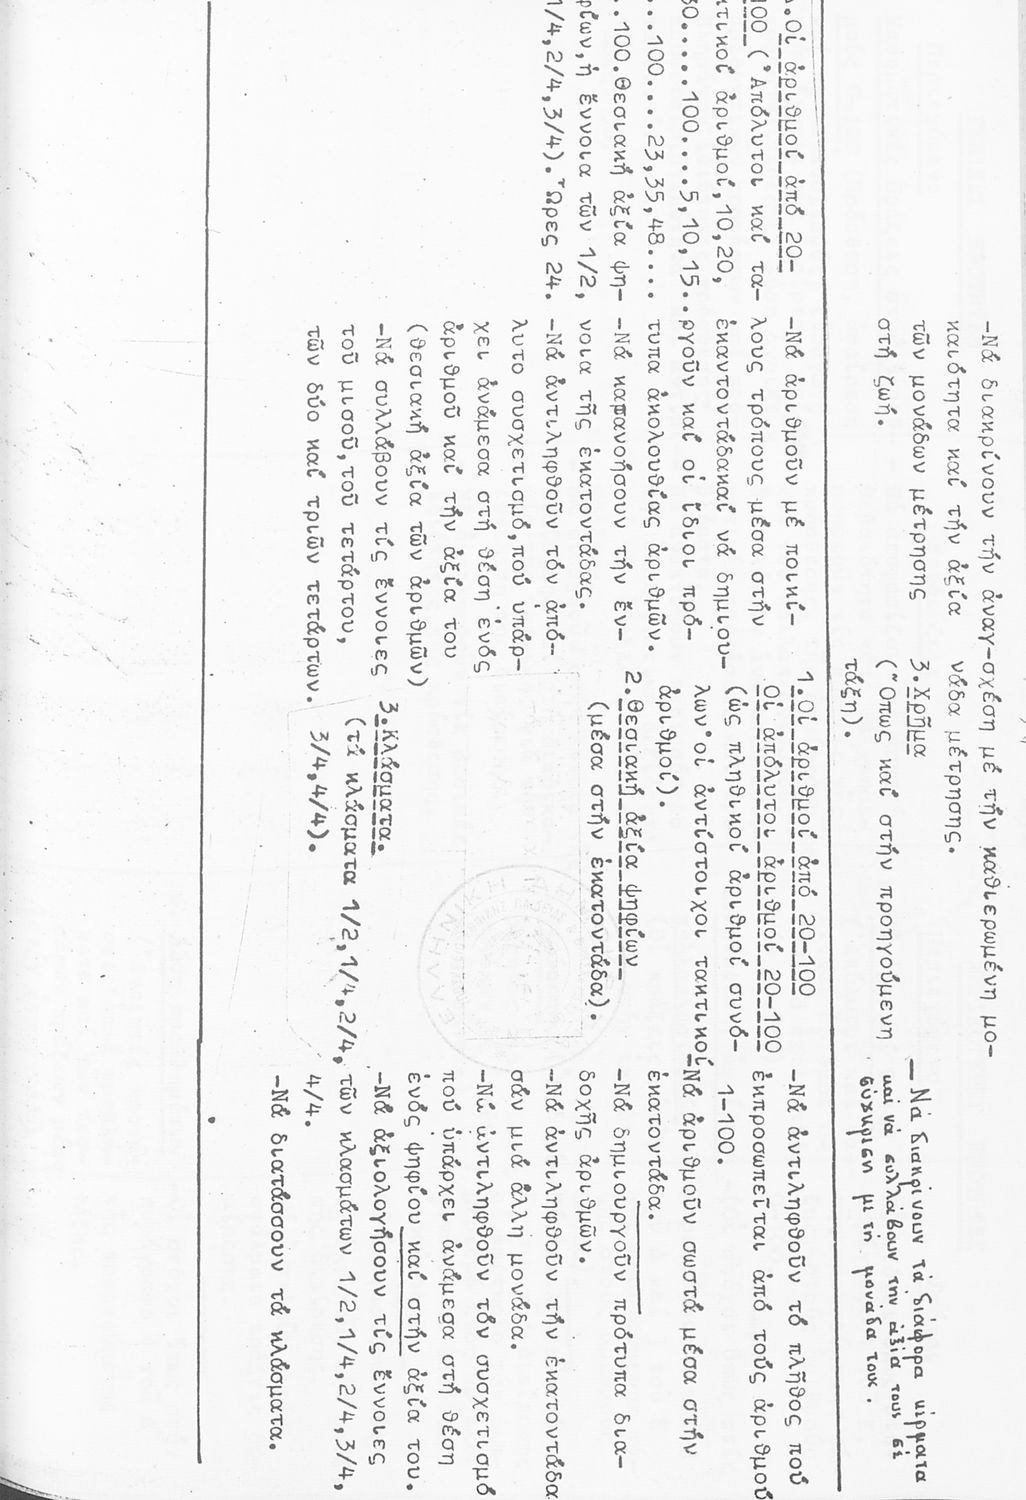 -Νά διακρίνουν τήν ἀναγ-
καιότητα καί τήν ἀξία
τῶν μονάδων μέτρησης
στή ζωή.
σχέση μέ τήν καθιερωμένη μο-
νάδα μέτρησης.
3.Χρῆμα
(Ὅπως καί στήν προηγούμενη
τάξη).
— Νά διακρίνουν τά διάφορα κέρματα
καί νά συλλάβουν τήν ἀξία τους σέ
σύγκριση μέ τή μονάδα τους.
1.Οἱ ἀριθμοί ἀπό 20-
100 (Ἀπόλυτοι καί τα-
κτικοί ἀριθμοί,10,20,
30......100.....5,10,15..
...100....23,35,48....
..100.Θεσιακή ἀξία ψη-
φίων,ἡ ἔννοια τῶν 1/2,
1/4,2/4,3/4). Ὧρες 24.
-Νά ἀριθμοῦν μέ ποικί-
λους τρόπους μέσα στήν
ἑκαντοντάδακαί νά δημιου-
ργοῦν καί οἱ ἴδιοι πρό-
τυπα ἀκολουθίας ἀριθμῶν.
-Νά καπανοήσουν τήν ἔν-
νοια τῆς ἑκατοντάδας.
-Νά ἀντιληφθοῦν τόν ἀπό-
λυτο συσχετισμό,πού ὑπάρ-
χει ἀνάμεσα στή θέση ἑνός
ἀριθμοῦ καί τήν ἀξία του
(θεσιακή ἀξία τῶν ἀριθμῶν)
-Νά συλλάβουν τίς ἔννοιες
τοῦ μισοῦ,τοῦ τετάρτου,
τῶν δύο καί τριῶν τετάρτων.
1.Οἱ ἀριθμοί ἀπό 20-100
Οἱ ἀπόλυτοι ἀριθμοί 20-100
(ὡς πληθικοί ἀριθμοί συνό-
λων·οἱ ἀντίστοιχοι τακτικοί
ἀριθμοί).
2.Θεσιακή ἀξία ψηφίων
(μέσα στήν ἑκατοντάδα).
3.Κλάσματα.
(τά κλάσματα 1/2,1/4,2/4,
3/4,4/4).
-Νά ἀντιληφθοῦν τό πλῆθος πού
ἐκπροσωπεῖται ἀπό τούς ἀριθμού
1-100.
-Νά ἀριθμοῦν σωστά μέσα στήν
ἑκατοντάδα.
-Νά δημιουργοῦν πρότυπα δια-
δοχῆς ἀριθμῶν.
-Νά ἀντιληφθοῦν τήν ἑκατοντάδα
σάν μιά ἄλλη μονάδα.
-Νά ἀντιληφθοῦν τόν συσχετισμό
πού ὑπάρχει ἀνάμεσα στή θέση
ἑνός ψηφίου καί στήν ἀξία του.
-Νά ἀξιολογήσουν τίς ἔννοιες
τῶν κλασμάτων 1/2,1/4,2/4,3/4,
4/4.
-Νά διατάσσουν τά κλάσματα.
ΕΛΛΗΝΙΚΗ